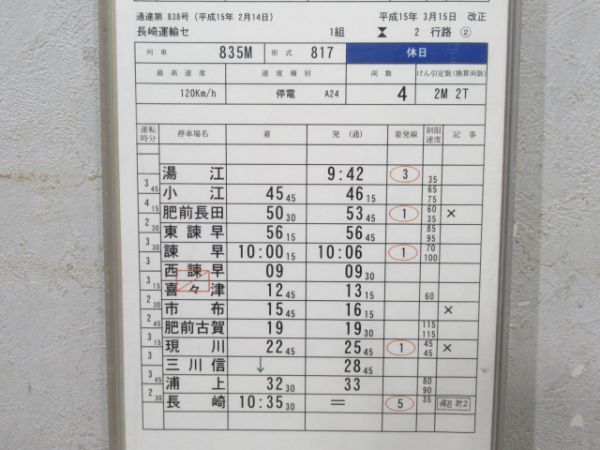 通達第 838号 (平成15年 2月14日) 平成15年 3月15日 改正
長崎運輸セ 1組 2 行路 ②
列車 835M 形式 817 休日
最高速度 速度種別 両数 けん引定数(換算両数)
120Km/h 停電 A24 4 2M 2T
運転時分 停車場名 着 発(通) 着発線 制限速度 記事
湯江 9:42 3
3 45 35
小江 45 45 46 15 65
4 15 75
肥前長田 50 30 53 45 1 60 ×
2 30 35
東諫早 56 15 56 45 85
3 30 95
諫早 10:00 15 10:06 1 70
3 100
西諫早 09 09 30
3 15
喜々津 12 45 13 15 60
2 30
市布 15 45 16 15 ×
2 45
肥前古賀 19 19 30 115
3 15 115
現川 22 45 25 45 1 45 ×
3 45
三川信 ↓ 28 45
3 45
浦上 32 30 33 80
2 30 90
長崎 10:35 30 = 5 35